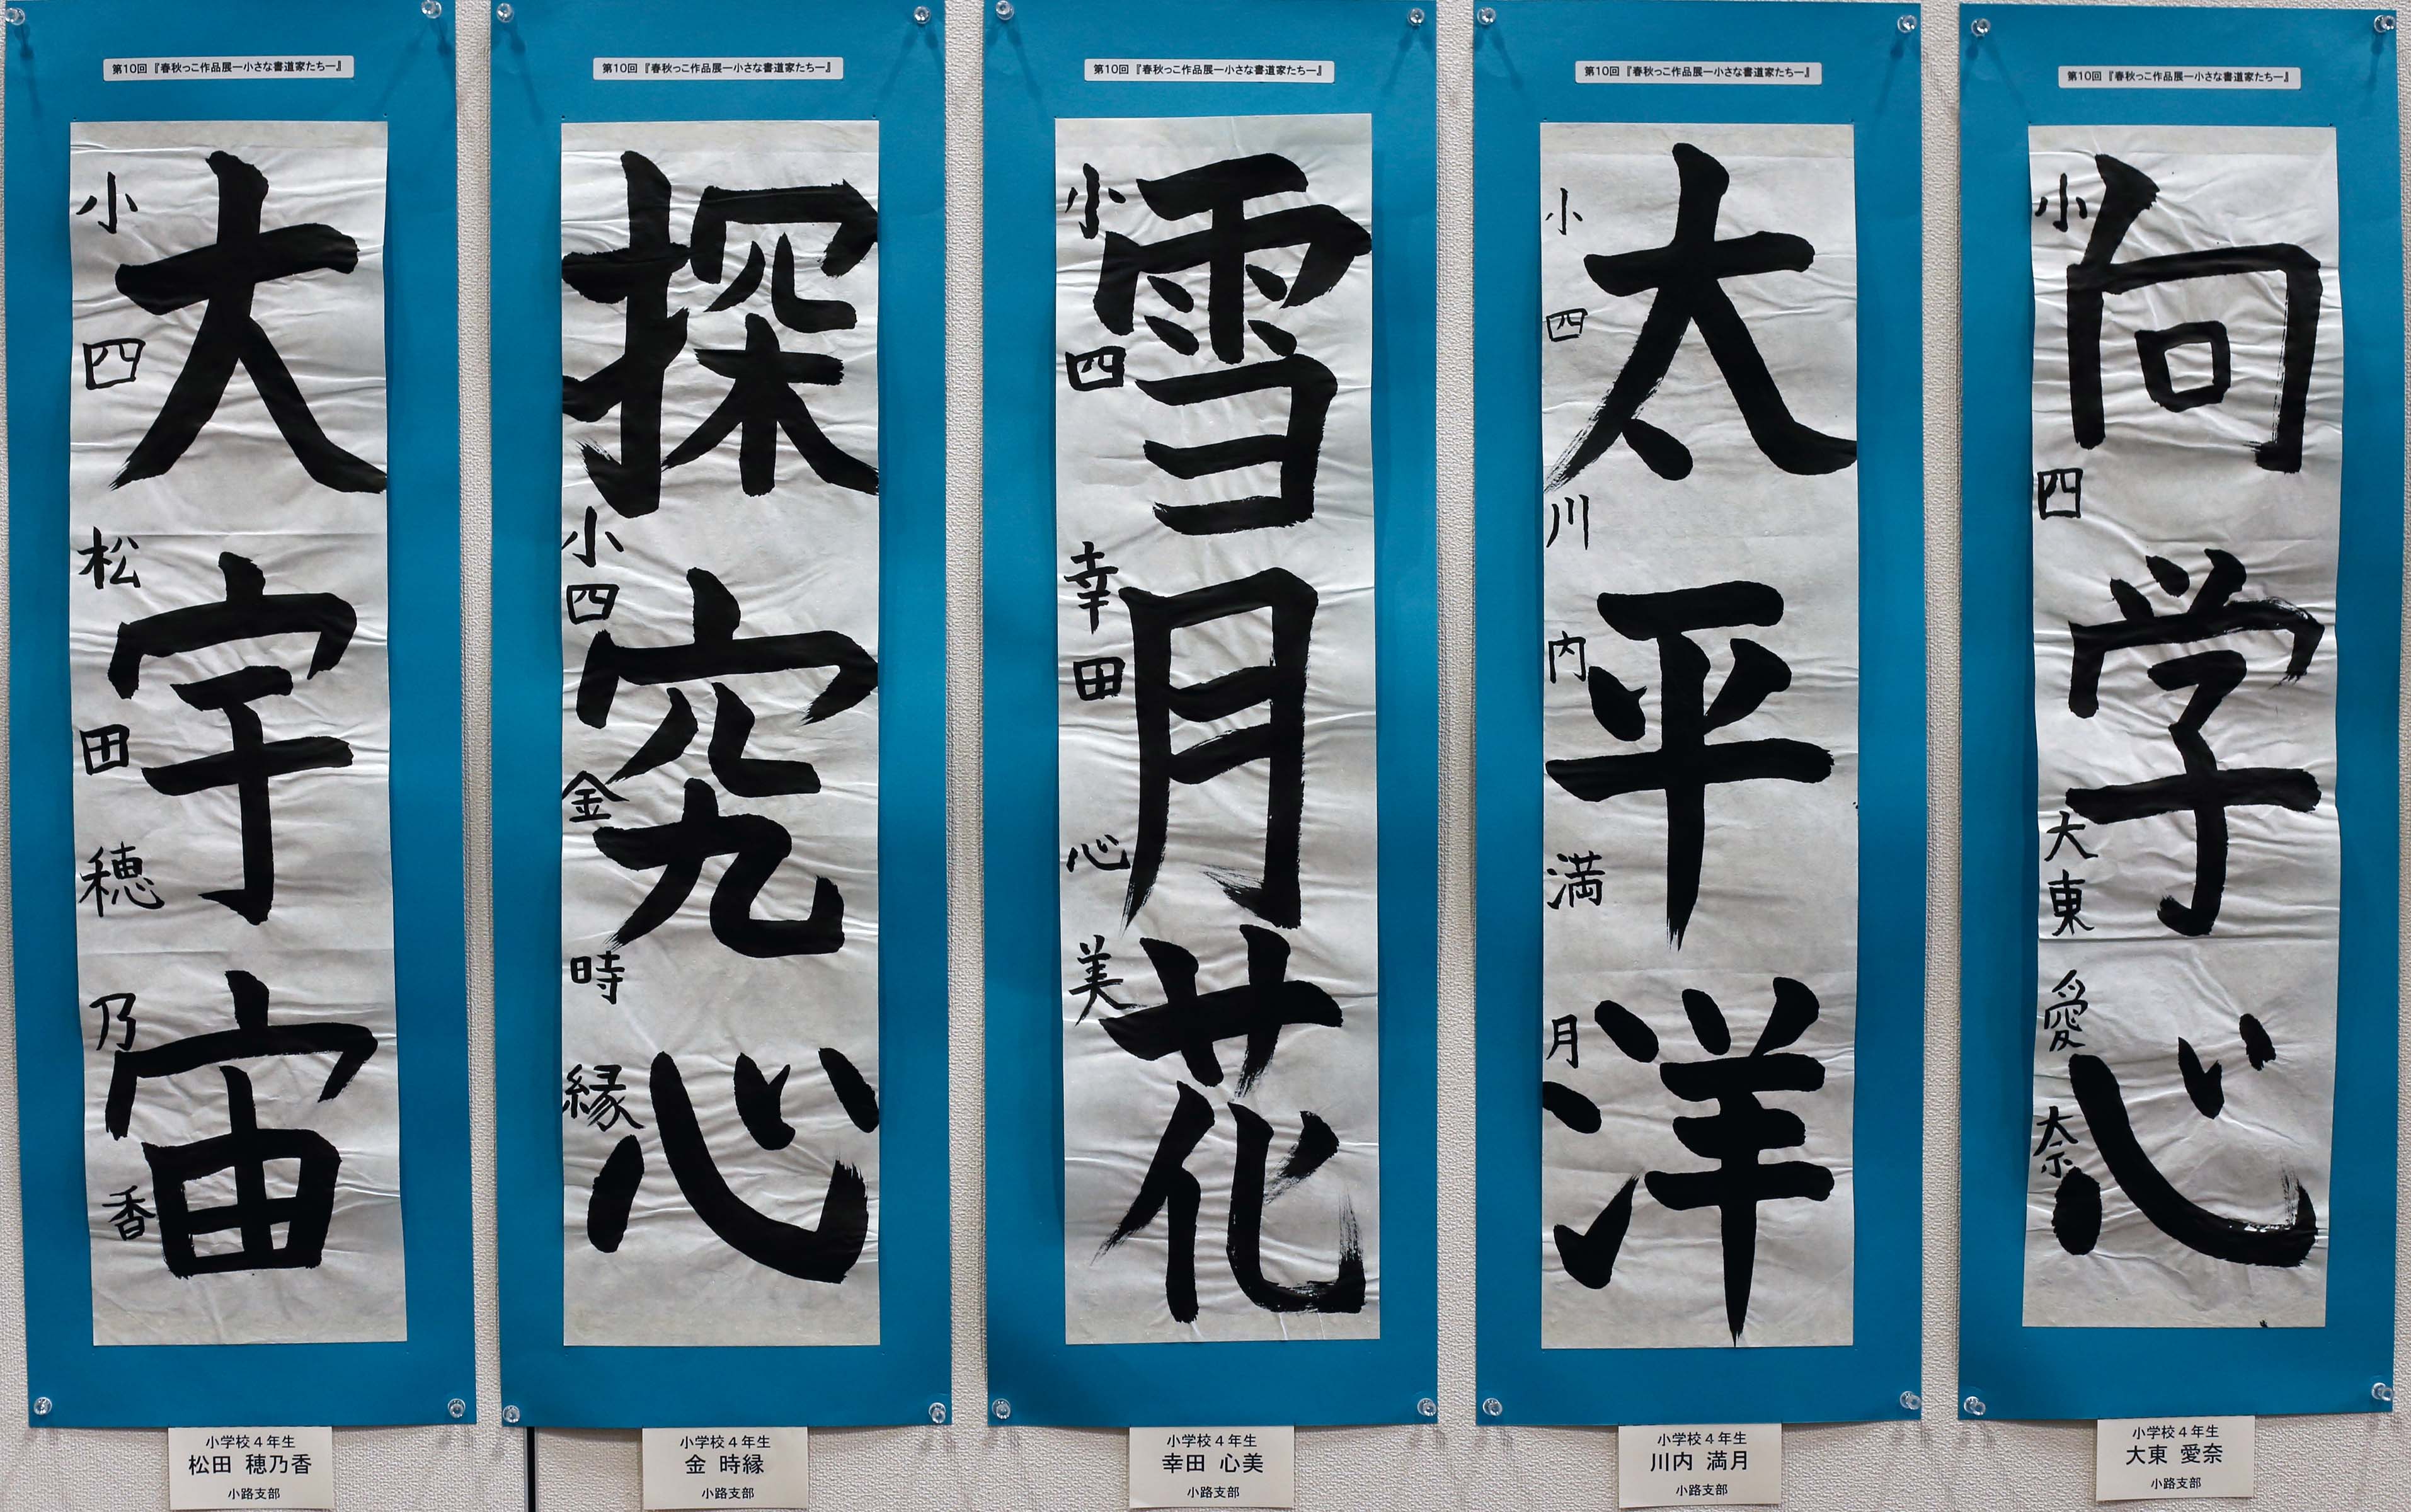 第10回『春秋っこ作品展―小さな書道家たち―』
大宇宙
小四 松田穂乃香
小学校4年生
松田 穂乃香
小路支部
第10回『春秋っこ作品展―小さな書道家たち―』
探究心
小四 金時縁
小学校4年生
金 時縁
小路支部
第10回『春秋っこ作品展―小さな書道家たち―』
雪月花
小四 幸田心美
小学校4年生
幸田 心美
小路支部
第10回『春秋っこ作品展―小さな書道家たち―』
太平洋
小四 川内満月
小学校4年生
川内 満月
小路支部
第10回『春秋っこ作品展―小さな書道家たち―』
向学心
小四 大東愛奈
小学校4年生
大東 愛奈
小路支部